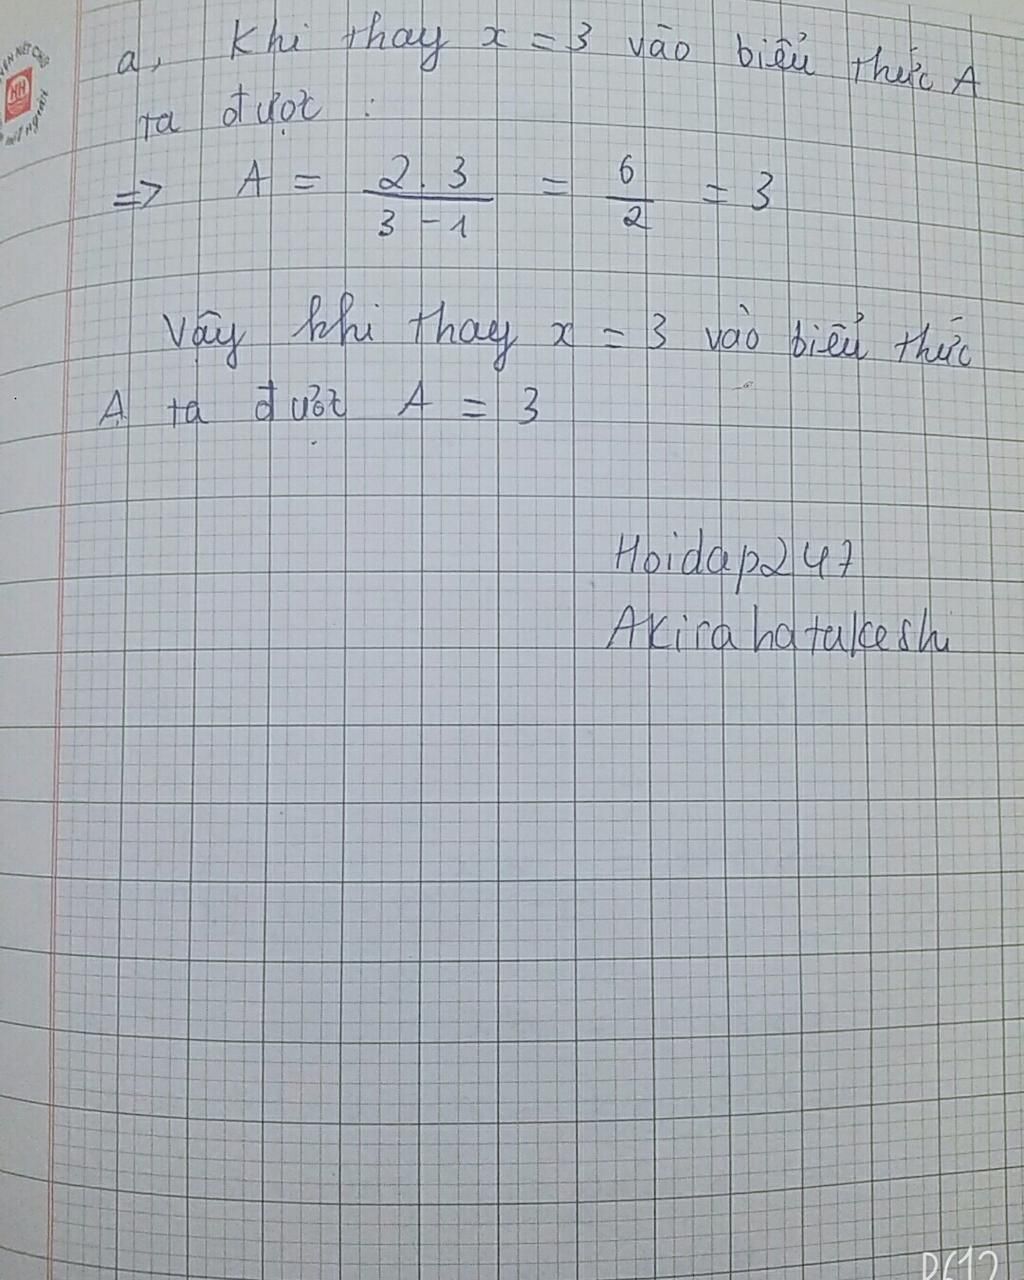 a, Khi thay x = 3 vào biểu thức A
ta được :
=> A = 2.3 / 3-1 = 6/2 = 3
Vậy khi thay x = 3 vào biểu thức
A ta được A = 3
Hoidap247
Akirahatakeshi